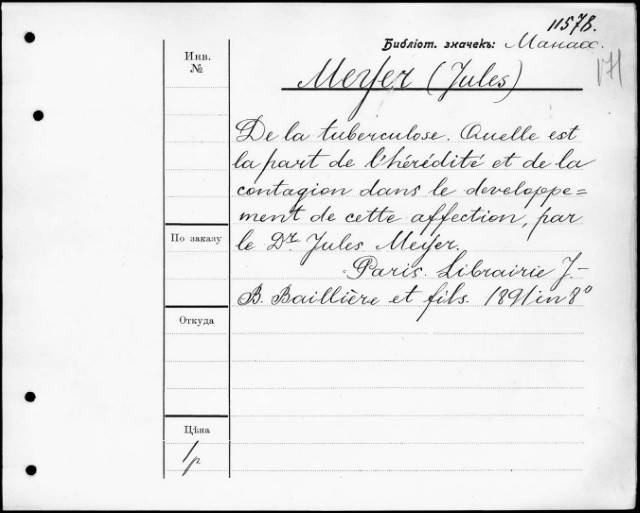 11578.
Библіот. значекъ: Манасс.
171
Инв.
№
Meyer (Jules)
De la tuberculose. Quelle est
la part de l'hérédité et de la
contagion dans le developpe=
ment de cette affection, par
По заказу
le Dr. Jules Meyer.
Paris. Librairie J.-
B. Baillière et fils. 1891 in 8°
Откуда
Цѣна
1/р